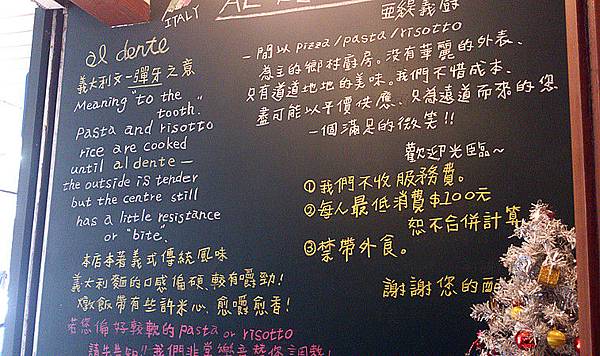 ITALY
al dente
義大利文—彈牙之意
Meaning "to the
tooth."
Pasta and risotto
rice are cooked
until al dente —
the outside is tender
but the centre still
has a little resistance
or "bite".
本店本著義式傳統風味
義大利麵的口感偏硬、較有嚼勁!
燉飯帶有些許米心、愈嚼愈香!
若您偏好較軟的pasta or risotto
請先告知!!我們非常樂意替您調整!
亞緹義廚
一間以pizza/pasta/risotto
為主的鄉村廚房。沒有華麗的外表、
只有道道地地的美味。我們不惜成本、
盡可能以平價供應、只為遠道而來的您
一個滿足的微笑!!
歡迎光臨~
①我們不收服務費。
②每人最低消費$100元
恕不合併計算
③禁帶外食。
謝謝您的配